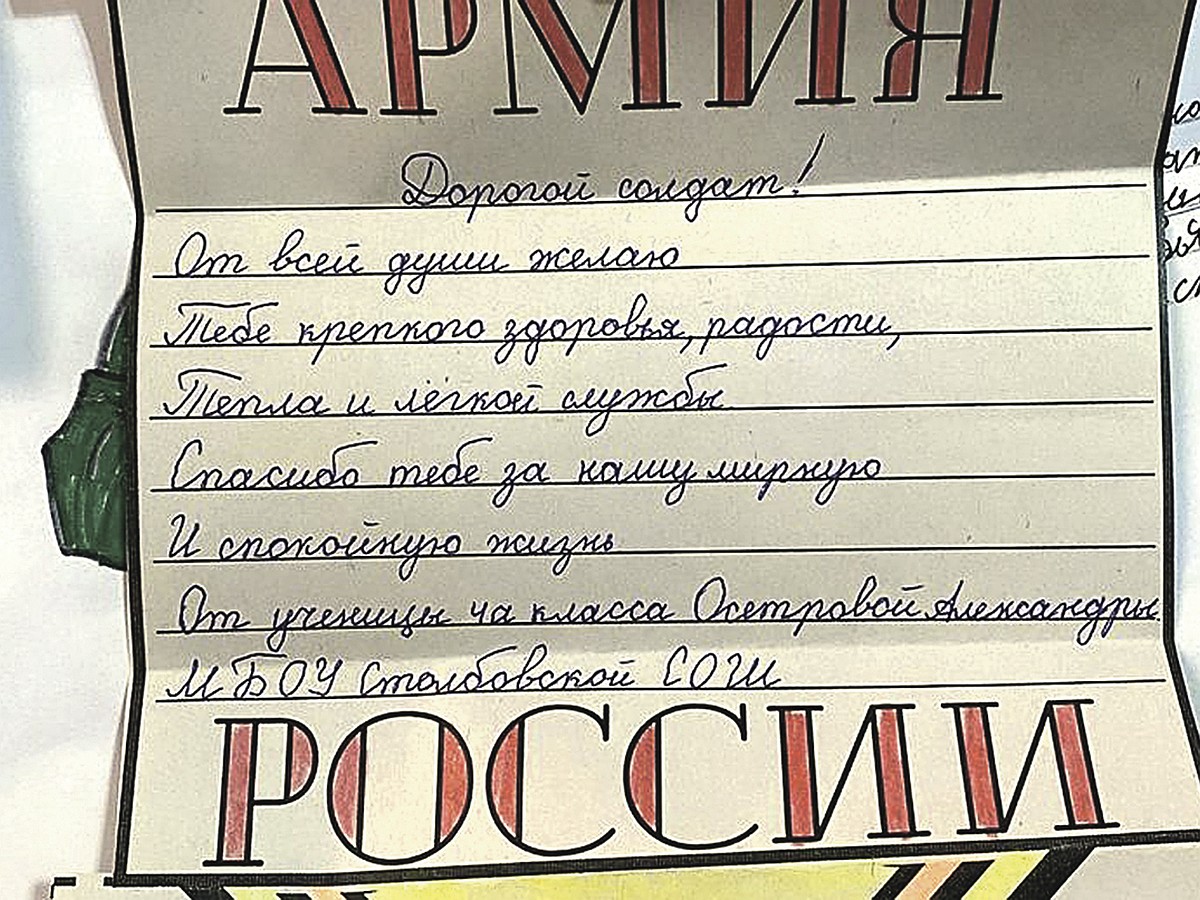 АРМИЯ
Дорогой солдат!
От всей души желаю
Тебе крепкого здоровья, радости,
Тепла и лёгкой службы
Спасибо тебе за нашу мирную
И спокойную жизнь
От ученицы 4а класса Осетровой Александры
МБОУ Столбовской СОШ
РОССИИ